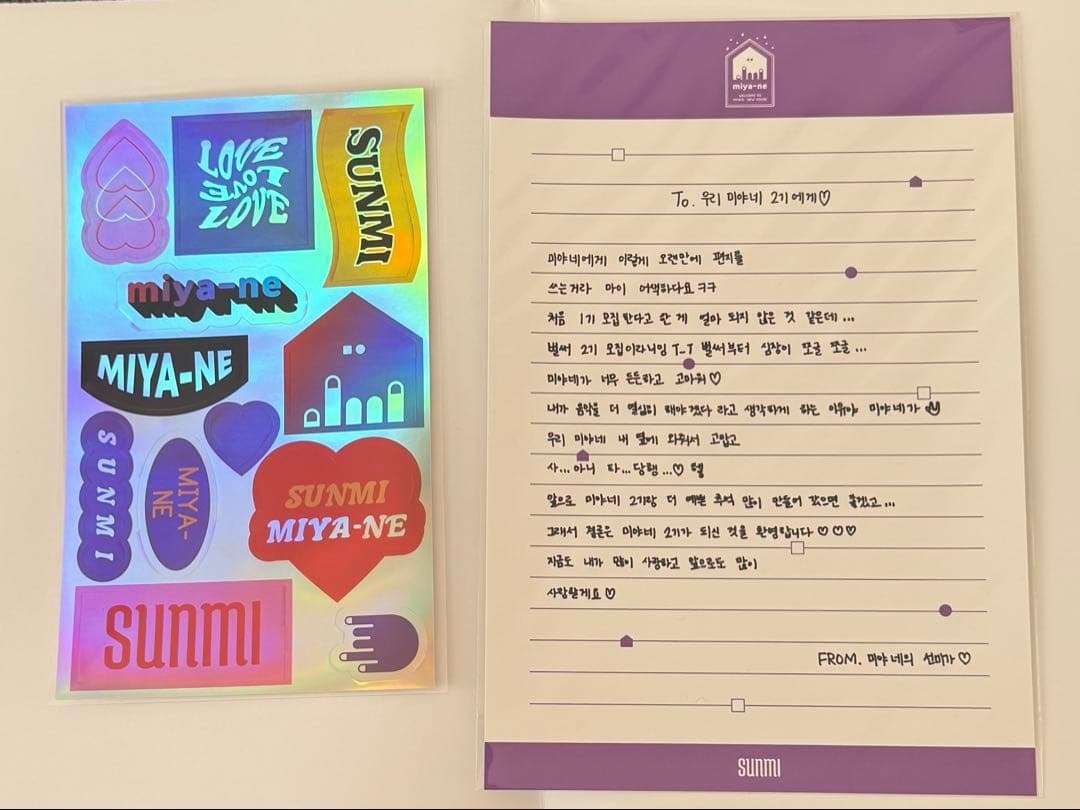 LOVE
LOVE
SUNMI
miya-ne
MIYA-NE
SUNMI
MIYA-
NE
SUNMI
MIYA-NE
sunmi
miya-ne
WELCOME TO
To. 우리 미야네 2기에게♡
미야네에게 이렇게 오랜만에 편지를
쓰는거라 마이 어색하다요ㅋㅋ
처음 1기 모집한다고 한 게 얼마 되지 않은 것 같은데...
벌써 2기 모집이라니잉 T_T 벌써부터 심장이 쪼글 쪼글...
미야네가 너무 든든하고 고마워♡
내가 음악을 더 열심히 해야겠다 라고 생각하게 하는 이유야 미야네가
우리 미야네 내 옆에 와줘서 고맙고
사...아니 타...당행...♡ 헿
앞으로 미야네 2기랑 더 예쁜 추억 많이 만들어 갔으면 좋겠고...
그래서 결론은 미야네 2기가 되신 것을 환영합니다♡♡♡
지금도 내가 많이 사랑하고 앞으로도 많이
사랑할게요♡
FROM. 미야네의 선미가♡
sunmi